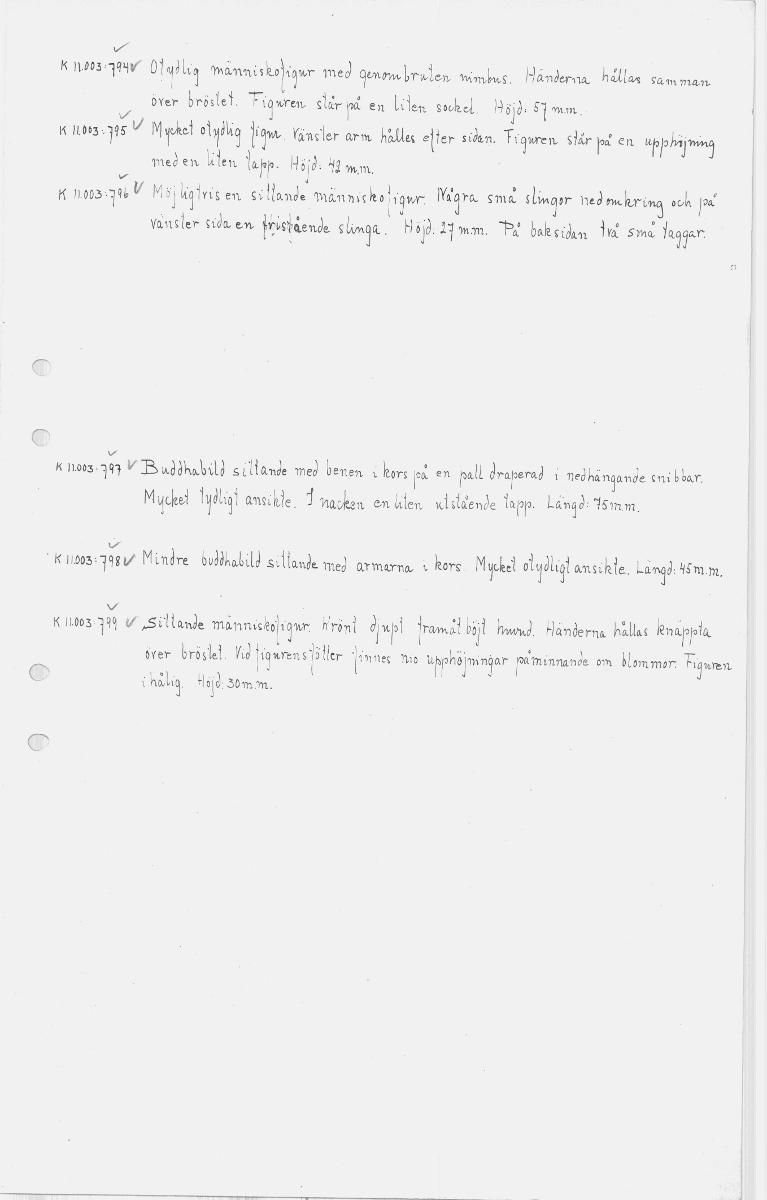 K 11.003:794 Otydlig människofigur med genombruten nimbus. Händerna hållas samman
över bröstet. Figuren står på en liten sockel. Höjd: 57 m.m.
K 11.003:795 Mycket otydlig figur. Vänster arm hålles efter sidan. Figuren står på en upphöjning
med en liten tapp. Höjd: 42 m.m.
K 11.003:796 Möjligtvis en sittande människofigur. Några små slingor nedomkring och på
vänster sida en fristående slinga. Höjd. 27 m.m. På baksidan två små taggar.
K 11.003:797 Buddhabild sittande med benen i kors på en pall draperad i nedhängande snibbar.
Mycket tydligt ansikte. I nacken en liten utstående tapp. Längd: 75 m.m.
K 11.003:798 Mindre buddhabild sittande med armarna i kors. Mycket otydligt ansikte. Längd: 45 m.m.
K 11.003:799 Sittande människofigur. Krönt djupt framåt böjt huvud. Händerna hållas knäppta
över bröstet. Vid figurens fötter finnes nio upphöjningar påminnande om blommor. Figuren
ihålig. Höjd: 30 m.m.